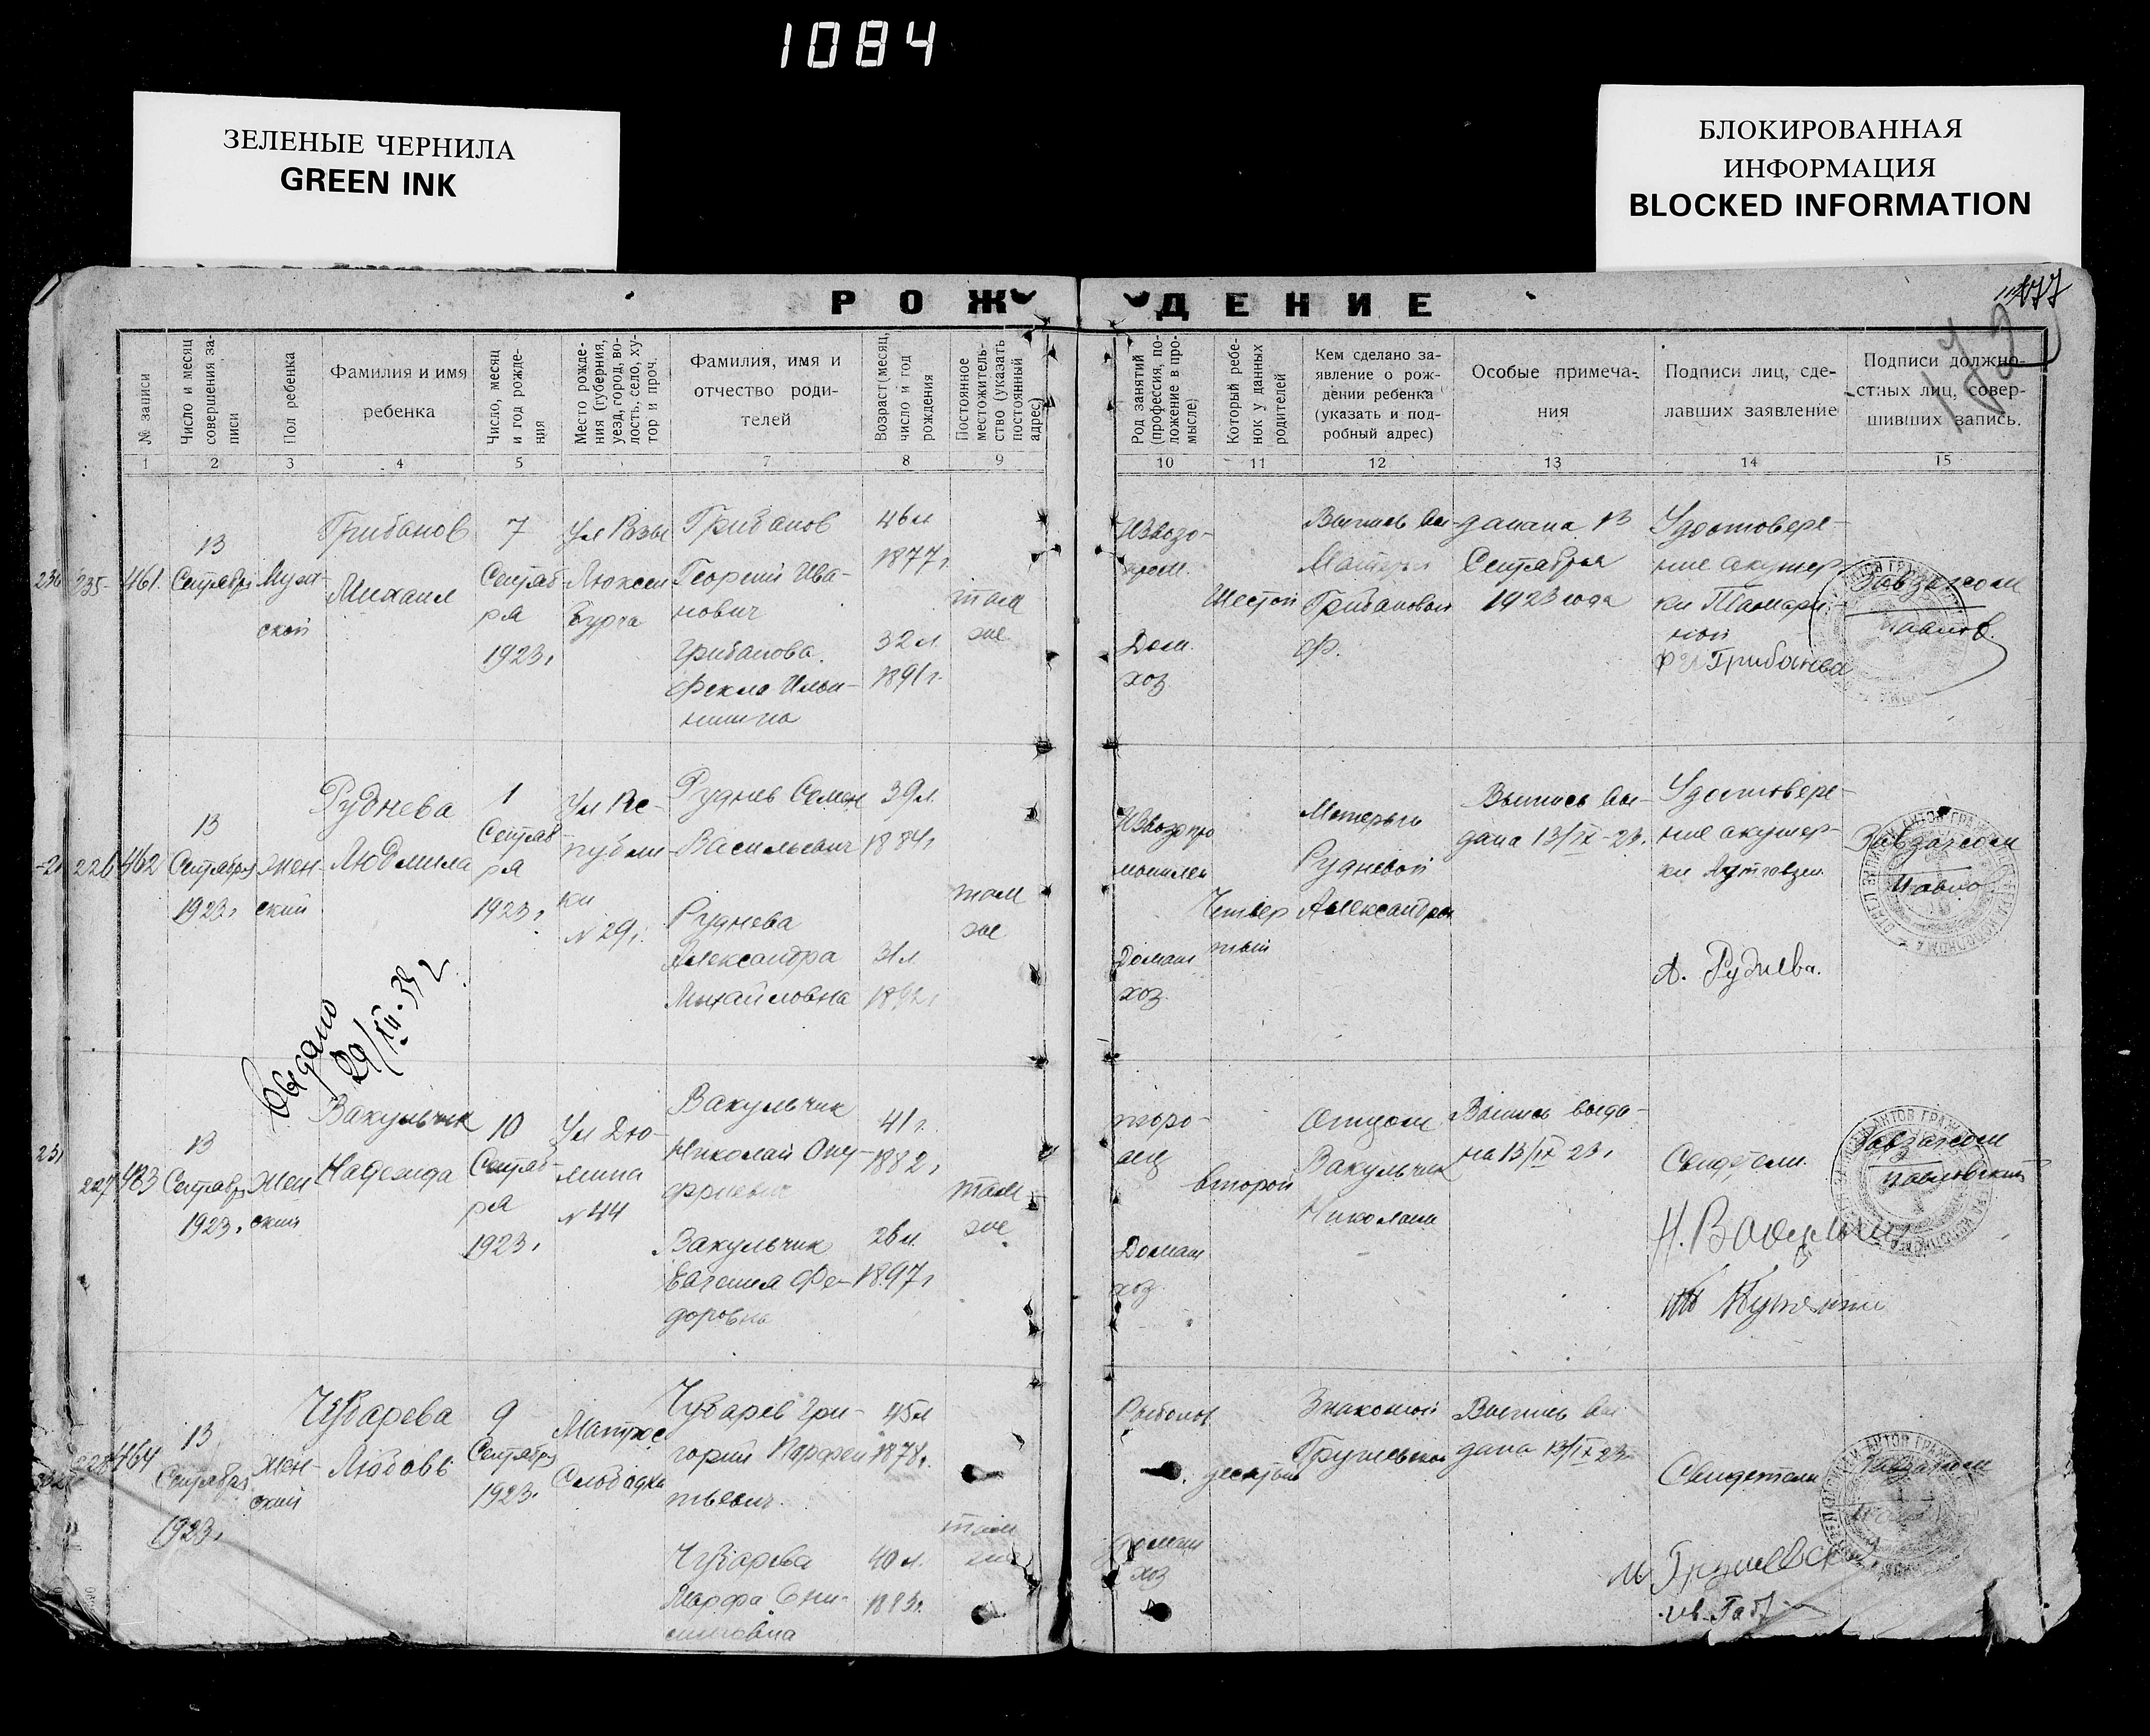 1084
ЗЕЛЕНЫЕ ЧЕРНИЛА
GREEN INK
БЛОКИРОВАННАЯ
ИНФОРМАЦИЯ
BLOCKED INFORMATION
РОЖДЕНИЕ
№ записи
Число и месяц
совершения за-
писи
Пол ребенка
Фамилия и имя
ребенка
Число, месяц
и год рожде-
ния
Место рожде-
ния (губерния,
уезд, город, во-
лость, село, ху-
тор и проч.
Фамилия, имя и
отчество роди-
телей
Возраст (месяц,
число и год
рождения
Постоянное
местожитель-
ство (указать
постоянный
адрес)
Род занятий
(профессия, по-
ложение в про-
мысле)
Который ребе-
нок у данных
родителей
Кем сделано за-
явление о рож-
дении ребенка
(указать и под-
робный адрес)
Особые примеча-
ния
Подписи лиц, сде-
лавших заявление
Подписи должно-
стных лиц, совер-
шивших запись.
1 2 3 4 5 7 8 9 10 11 12 13 14 15
235
461.
13
Сентября
Муж-
ской
Грибанов
Михаил
7
Сентяб-
ря
1923г
Ул Розы
Люксем
бурга
Грибанов
Георгий Ива-
нович
Грибанова
Фекла Ильи-
нишна
46л
1877г
32л.
1891г.
там
же
Дом.
хоз.
Шестой
Выпись вы-
Матерью
Грибановой
Ф.
дана 13
Сентября
1923 года
Удостовере-
ние акушер-
ки
Грибанова
Завзагсом
226
462
13
Сентября
1923г
Жен-
ский
Руднева
Людмила
1
Сентяб
ря
1923г
Ул Рес-
публи-
ки
№ 29г.
Руднев Семен
Васильевич
Руднева
Александра
Михайловна
39л.
1884г
31л.
1892г
там
же
Домаш
хоз.
Четвер
тый
Матерью
Рудневой
Александрой
Выпись вы-
дана 13/IX-23г.
Удостовере-
ние акушер-
ки
А. Руднева.
Завзагсом
выдано
29/XII-39 г.
227
463
13
Сентября
1923г
Жен
ский
Вакульчик
Надежда
10
Сентяб-
ря
1923г
№ 44
Вакульчик
Николай Ону-
фриевич
Вакульчик
Евгения Фе-
доровна
41г.
1882г
26л.
1897г
там
же
Домаш
хоз.
второй
Отцом
Вакульчик
Николаем
Выпись выда-
на 13/IX 23г
Свидетели.
Завзагсом
228
464
13
Сентября
1923г
Жен-
ский
Чубарева
Любовь
9
Сентября
1923г.
Матрос
Слободка
Чубарев Гри-
горий Парфен
тьевич.
Чубарева
Марфа
45л
1878г.
40л.
1883г.
там
же
Рыболов
Домаш
хоз
десятый
Знакомой
Выпись вы
дана 13/IX 23г
Свидетели
Завзагсом